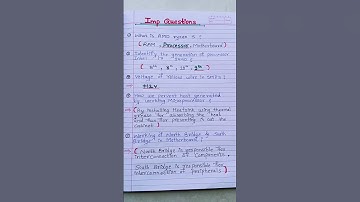 Imp Questions
① What is AMD ryzen 5 ?
(RAM, Processor, Motherboard)
② Identify the generation of processor
Intel i7
( 5th, 8th, 10th,
③ Voltage of Yellow wire in SMPS ?
+12V
④ How we prevent heat generated
by working Microprocessor ?
(By Installing Heatsink using thermal
grease for
And
Cabinet)
⑤ Working of North Bridge & South
Bridge in Motherboard ?
(North Bridge is responsible for
Interconnection of Components.
South Bridge is responsible for
Interconnection of Peripherals)